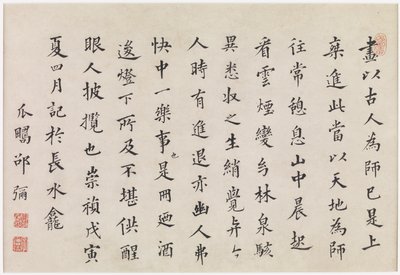 畫以古人為師已是上
乘進此當以天地為師
往常憩息山中晨起
看雲煙變幻林泉駭
異悉收之生綃覺
人時有進退亦幽人弗
快中一樂事也是冊迺酒
後燈下所及不堪供醒
眼人披攬也崇禎戊寅
夏四月記於長水龕
瓜疇邵彌